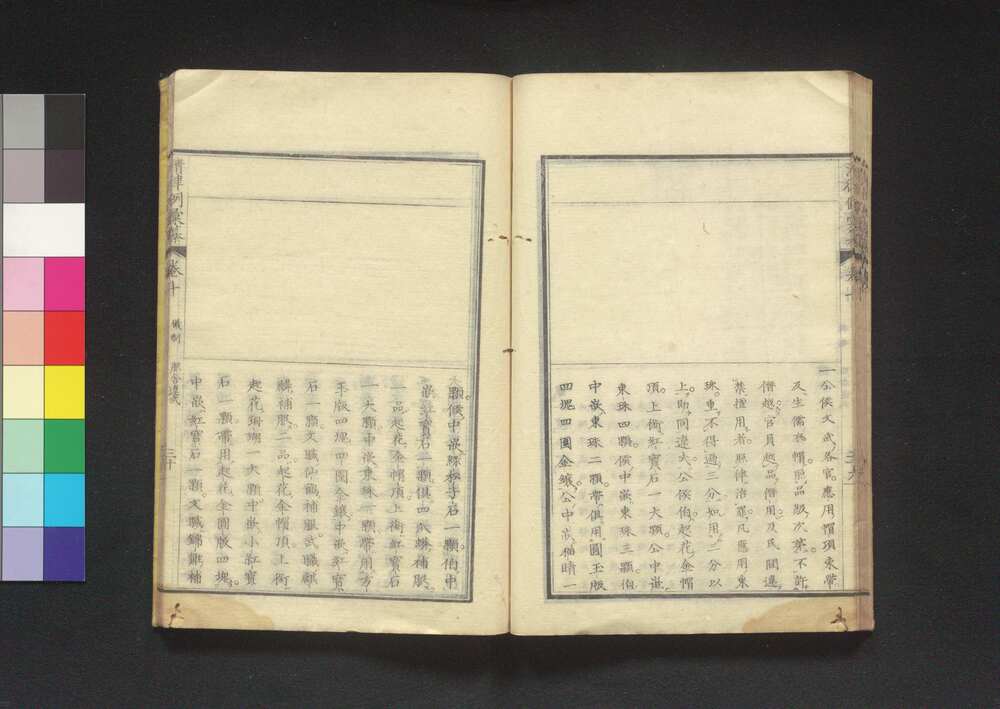 一公侯文武各官應用帽頂束帶
及生儒衣帽照品級次第不許
僭越官員越品僭用及民間違
禁擅用者照律治罪凡應用東
珠重不得過三分如用三分以
上助同違大公侯伯起花金帽
頂上銜紅寶石一大顆公中嵌
東珠四顆侯中嵌東珠三顆伯
中嵌東珠二顆帶俱用圓玉版
四塊四圍金鑲公中嵌猫睛一
顆侯中嵌綠松子石一顆伯中
嵌紅寶石一顆俱四爪蟒補服
一品起花金帽頂上銜紅寶石
一大顆中嵌東珠一顆帶用方
玉版四塊四圍金鑲中嵌紅寶
石一顆文職仙鶴補服武職麒
麟補服二品起花金帽頂上銜
起花珊瑚一大顆中嵌小紅寶
石一顆帶用起花金圓版四塊
中嵌紅寶石一顆文職錦雞補
清律例彙纂
卷十
儀制
服舍違式
三十